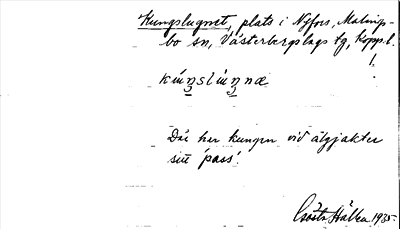 Kungslugnet, plats i Nyfors, Malings-
bo sn, Västerbergslags tg, Kopp. l.
kúŋslúŋnæ
Där har kungen vid älgjakter
sitt 'pass'.
Gösta Hålla 1935